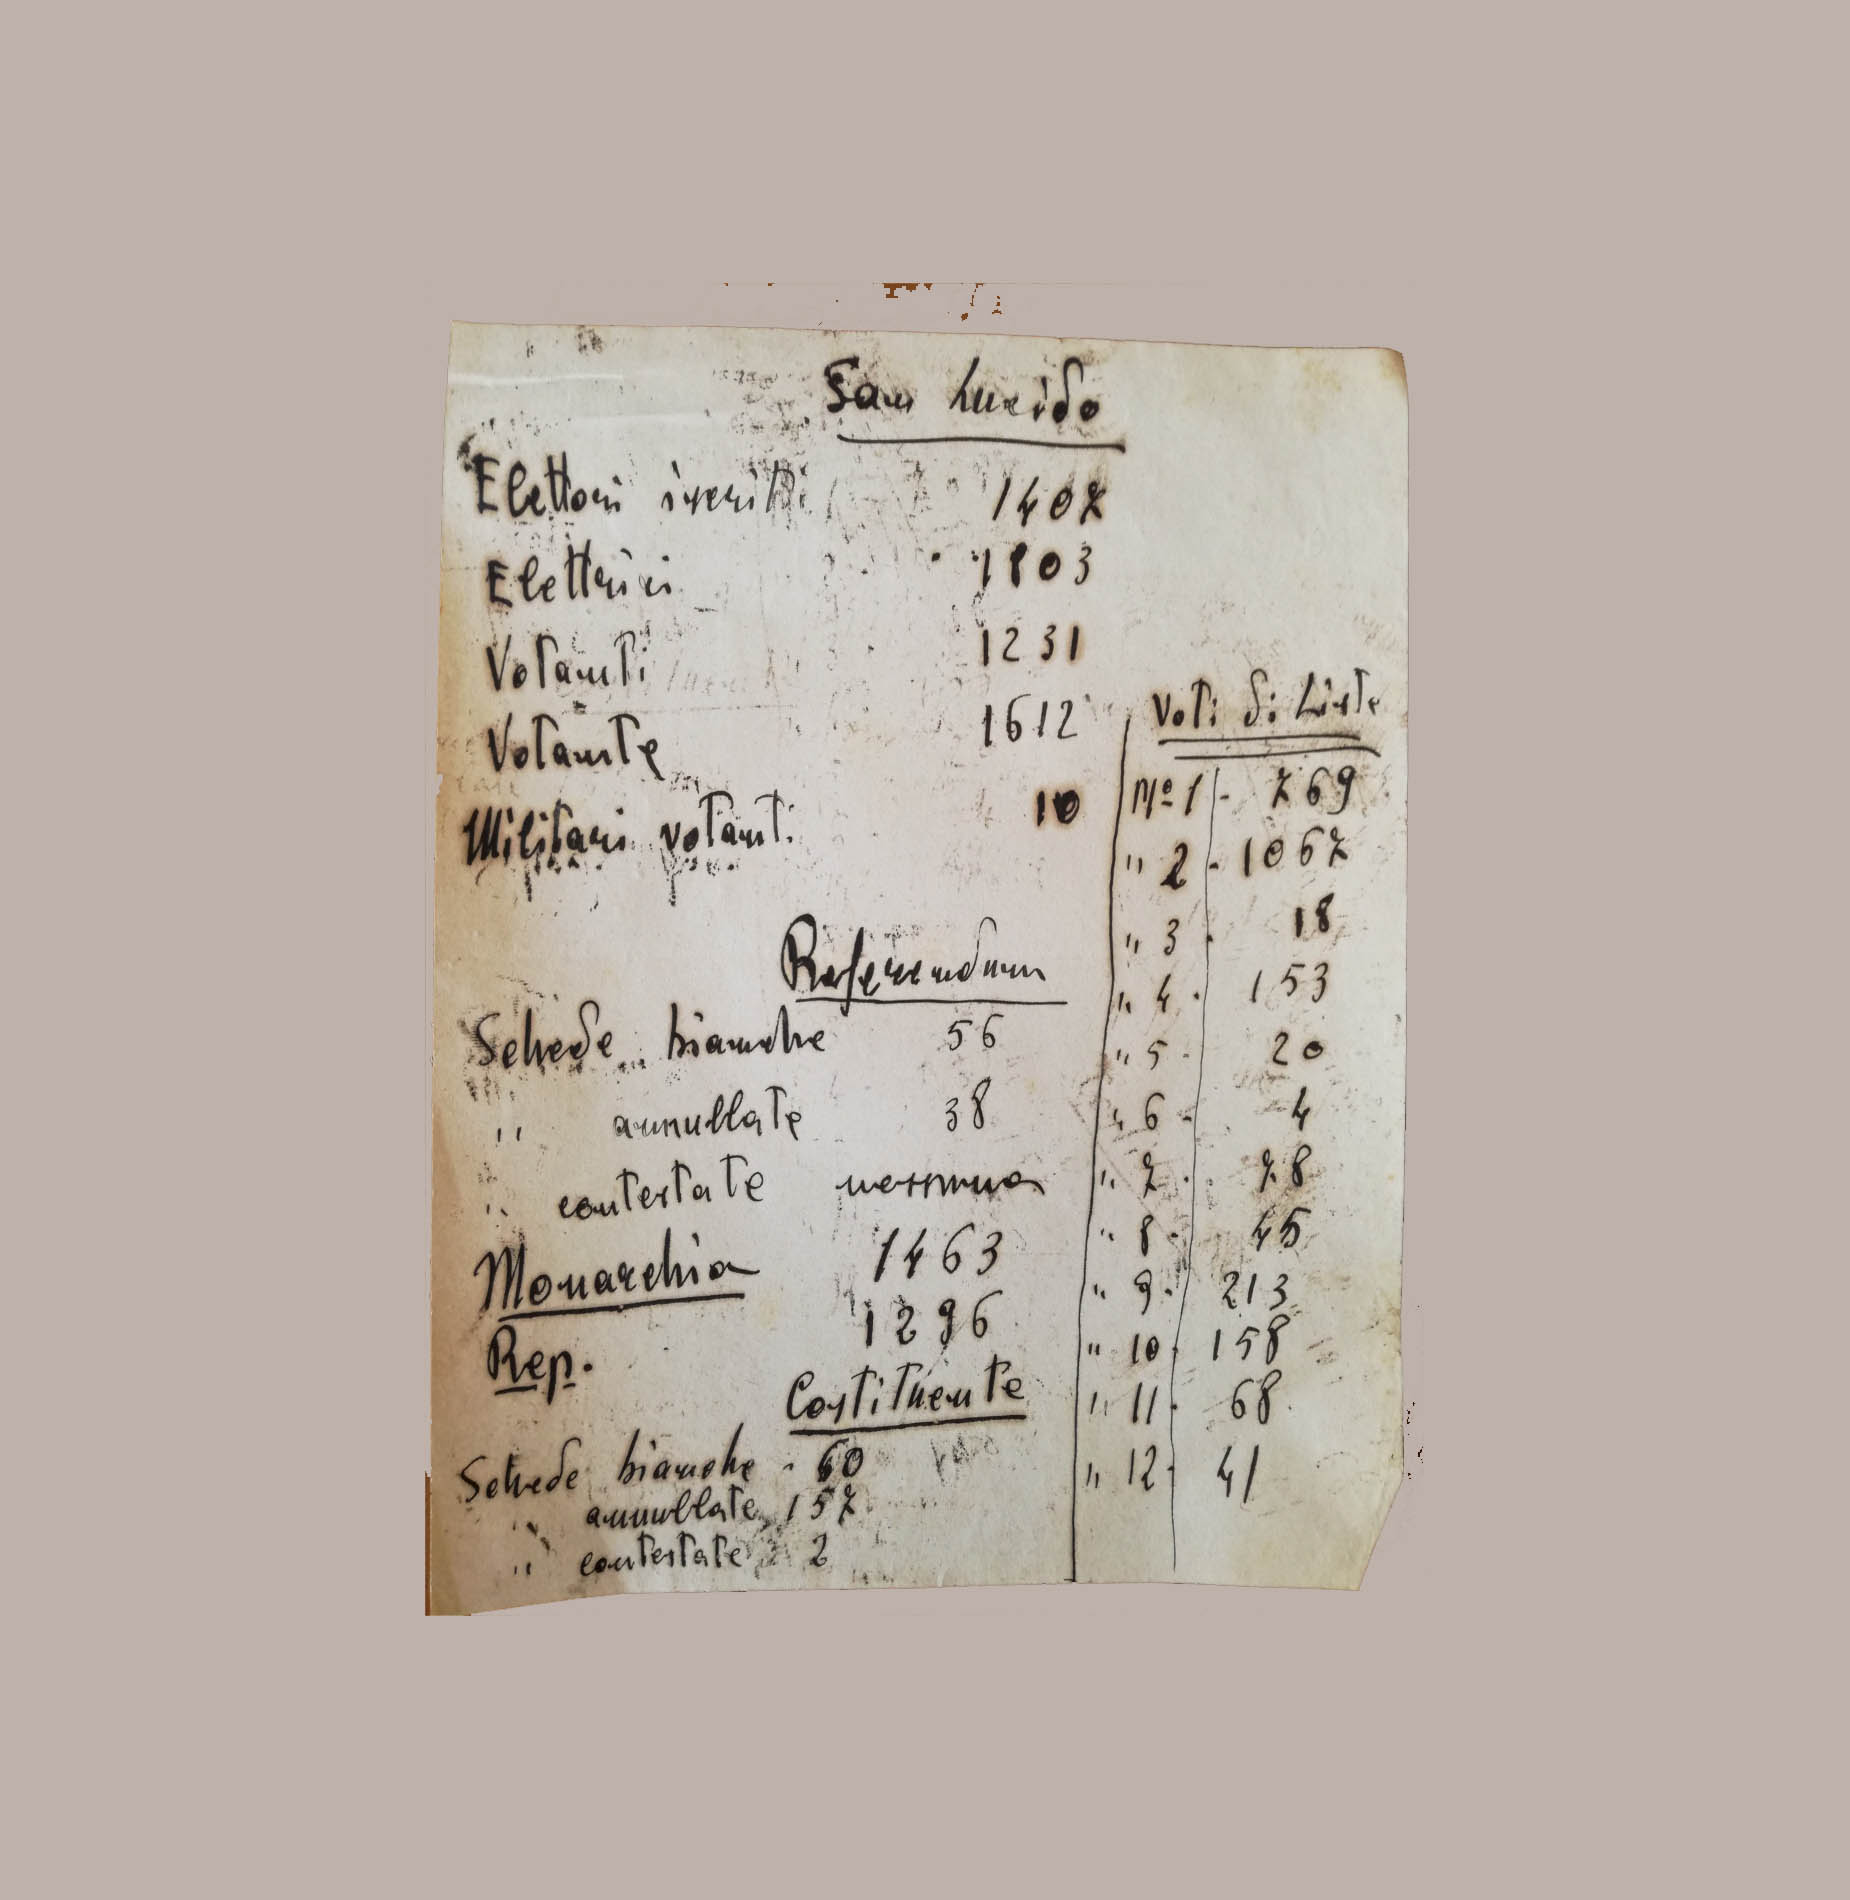 San Lucido
Elettori iscritti 1407
Elettrici 1803
Votanti 1231
Votante 1612
Militari votanti 10
Referendum
Schede bianche 56
" annullate 38
" contestate nessuna
Monarchia 1463
Rep. 1296
Costituente
Schede bianche - 60
" annullate 157
" contestate 2
Voti di Liste
Nº 1 - 769
" 2 - 1067
" 3 - 18
" 4 - 153
" 5 - 20
" 6 - 4
" 7 - 78
" 8 - 45
" 9 - 213
" 10 - 158
" 11 - 68
" 12 - 41